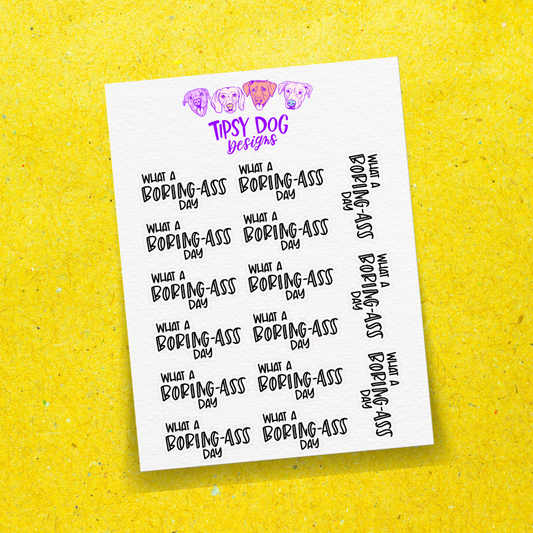 TIPSY DOG
Designs
WHAT A
BORING-ASS
DAY
WHAT A
BORING-ASS
DAY
WHAT A
BORING-ASS
DAY
WHAT A
BORING-ASS
DAY
WHAT A
BORING-ASS
DAY
WHAT A
BORING-ASS
DAY
WHAT A
BORING-ASS
DAY
WHAT A
BORING-ASS
DAY
WHAT A
BORING-ASS
DAY
WHAT A
BORING-ASS
DAY
WHAT A
BORING-ASS
DAY
WHAT A
BORING-ASS
DAY
WHAT A
BORING-ASS
DAY
WHAT A
BORING-ASS
DAY
WHAT A
BORING-ASS
DAY